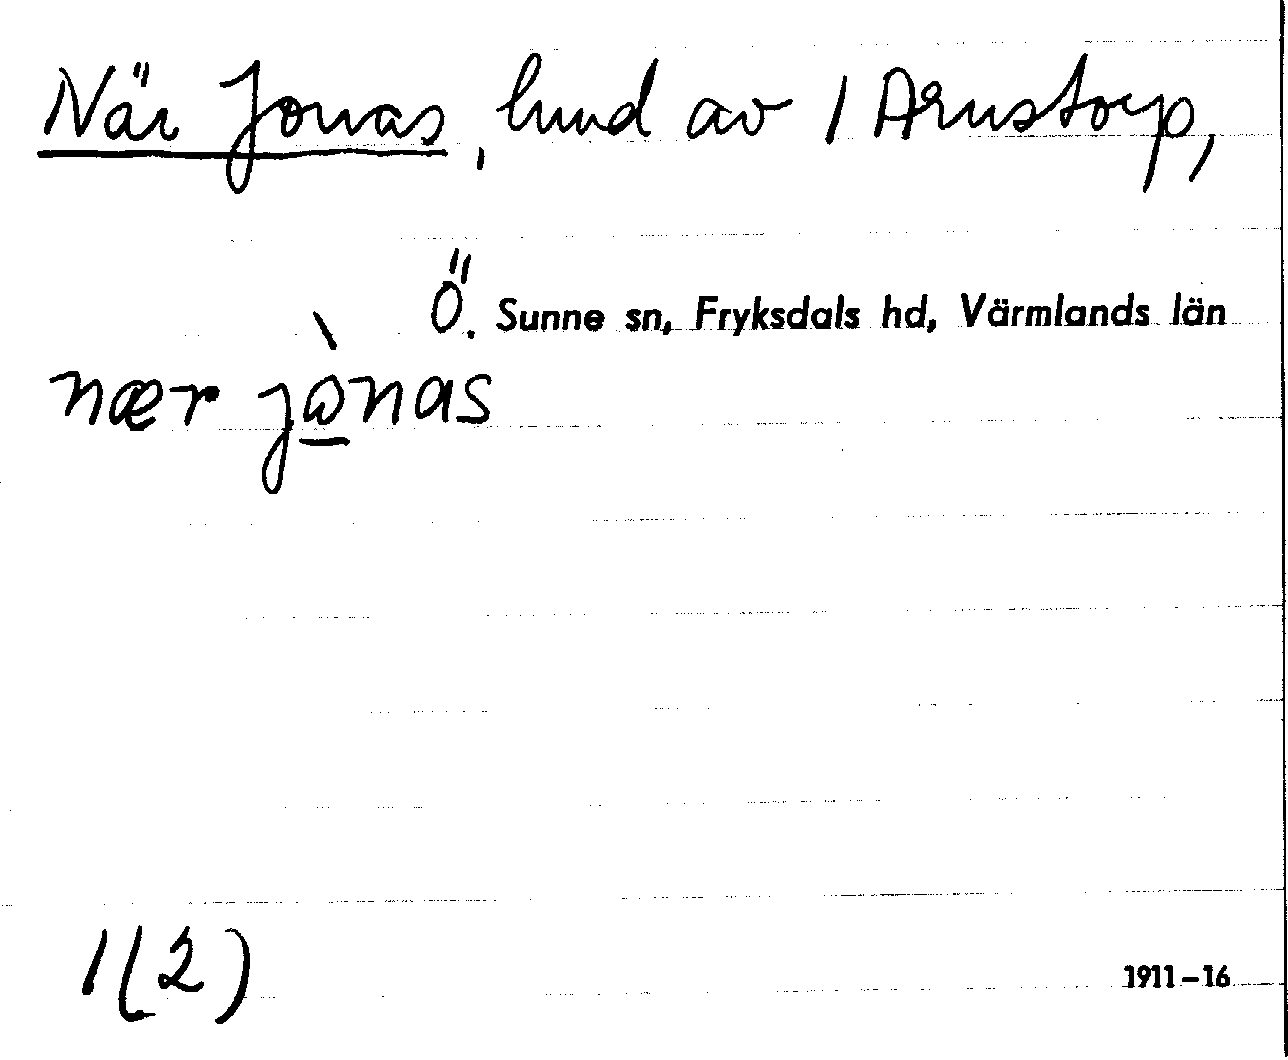 När Jonas, hmd av 1 Arnstorp,
Ö. Sunne sn, Fryksdals hd, Värmlands län
nær jònas
1(2)
1911-16